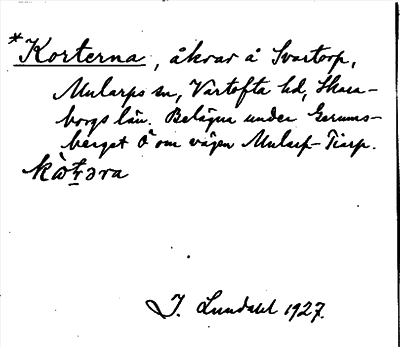 *Korterna, åkrar å Svartorp,
Mularps sn, Vartofta hd, Skara-
borgs län. Belägna under Gerums-
berget Ö om vägen Mularp-Tiarp.
J. Lundahl 1927.